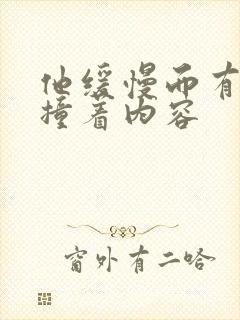 他缓慢而有
撞着内容
窗外有二哈